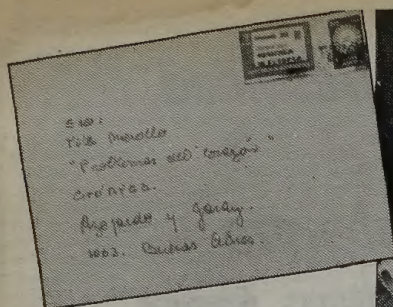 Tita Merello
"Problemas del Corazón"
Crónica.
Azopardo y Garay.
Buenos Aires.